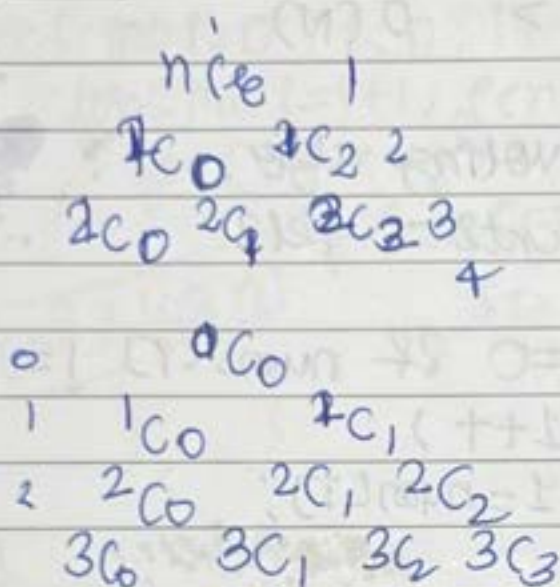 1
1C0 1C2 2
2C0 2C1 2C2 3
4
0 0C0
1 1C0 1C1
2 2C0 2C1 2C2
3C0 3C1 3C2 3C3